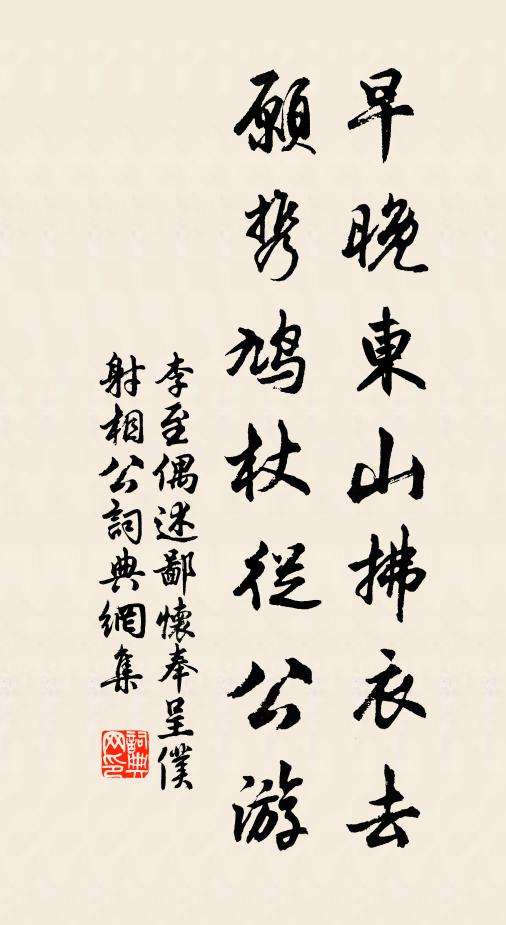 早晚東山拂衣去
願携鳩杖從公游
李至偶述鄙懷奉呈僕
射相公詞典網集
詞典
网印